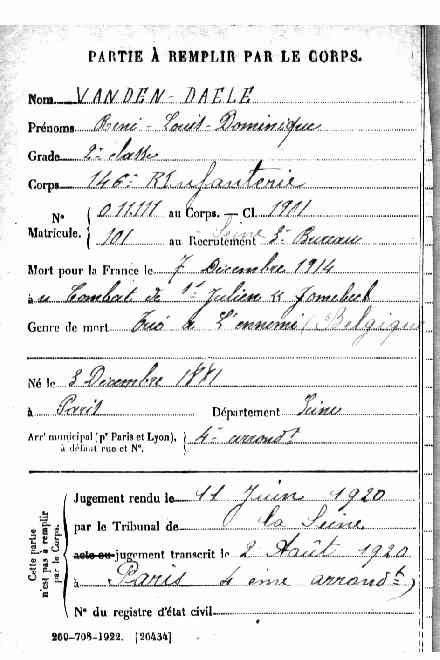 PARTIE À REMPLIR PAR LE CORPS.
Nom VANDEN-DAELE
Prénoms René-Louis-Dominique
Grade 2e classe
Corps 146e Rt Infanterie
N° 0.11.111 au Corps. — Cl. 1901
Matricule. 101 au Recrutement Seine 3e Bureau
Mort pour la France le 7 Décembre 1914
à u Combat de St Julien
Genre de mort Tué à L'ennemi (Belgique
Né le 3 Décembre 1881
à Paris Département Seine
Arrt municipal (pr Paris et Lyon), 4e arrondt
à défaut rue et N°.
Cette partie n'est pas à remplir par le Corps.
Jugement rendu le 11 Juin 1920
par le Tribunal de la Seine
acte ou jugement transcrit le 2 Août 1920
à Paris 4 ème arrondt)
N° du registre d'état civil
260-708-1922. [26434]